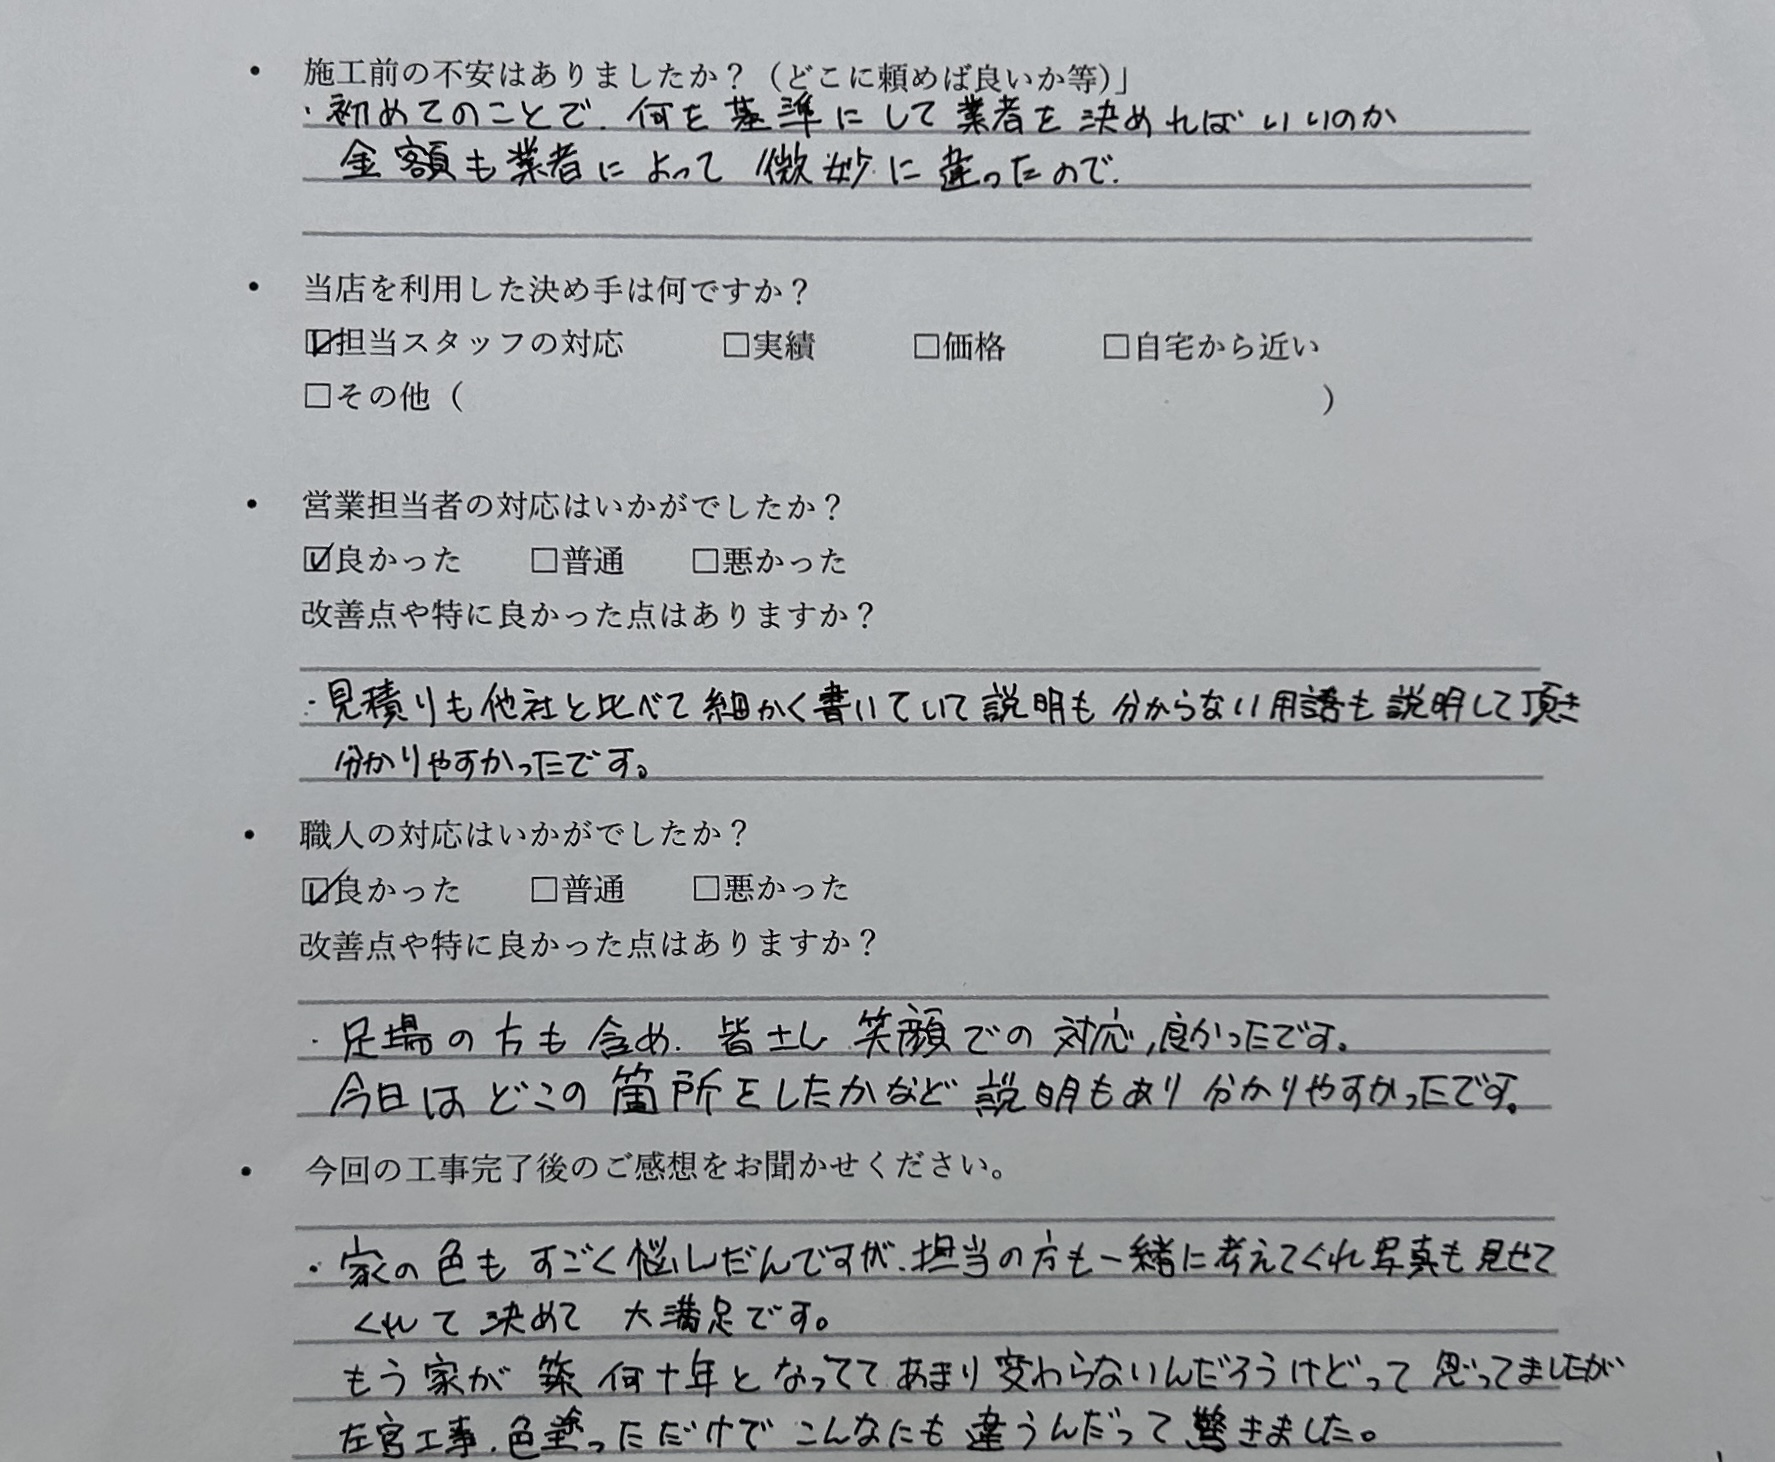 ・ 施工前の不安はありましたか？（どこに頼めば良いか等）」
・初めてのことで、何を基準にして業者を決めればいいのか
金額も業者によって微妙に違ったので、
・ 当店を利用した決め手は何ですか？
☑担当スタッフの対応 □実績 □価格 □自宅から近い
□その他（ ）
・ 営業担当者の対応はいかがでしたか？
☑良かった □普通 □悪かった
改善点や特に良かった点はありますか？
・見積りも他社と比べて細かく書いていて説明も分からない用語も説明して頂き
分かりやすかったです。
・ 職人の対応はいかがでしたか？
☑良かった □普通 □悪かった
改善点や特に良かった点はありますか？
・足場の方も含め、皆さん笑顔での対応、良かったです。
今日はどこの箇所をしたかなど説明もあり分かりやすかったです。
・ 今回の工事完了後のご感想をお聞かせください。
・家の色もすごく悩んだんですが、担当の方も一緒に考えてくれ写真も見せて
くれて決めて 大満足です。
もう家が築何十年となっててあまり変わらないんだろうけどって思ってましたが
左官工事、色塗っただけでこんなにも違うんだって驚きました。